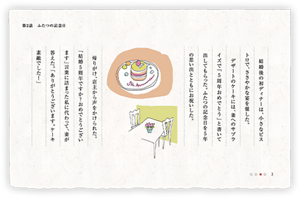 第2話 ふたつの記念日
結婚後の初ディナーは、小さなビス
トロで、ささやかな宴を催した。
デザートのケーキには、妻へのサプラ
イズで「5周年おめでとう」と書いて
出してもらった。ふたつの記念日を5年
の思い出とともにお祝いした。
帰りがけ、店主から声をかけられた。
「結婚5周年ですか?おめでとうござい
ます」返答に詰まった私に代わって、妻が
答えた。「ありがとうございます。ケーキ
素敵でした!」